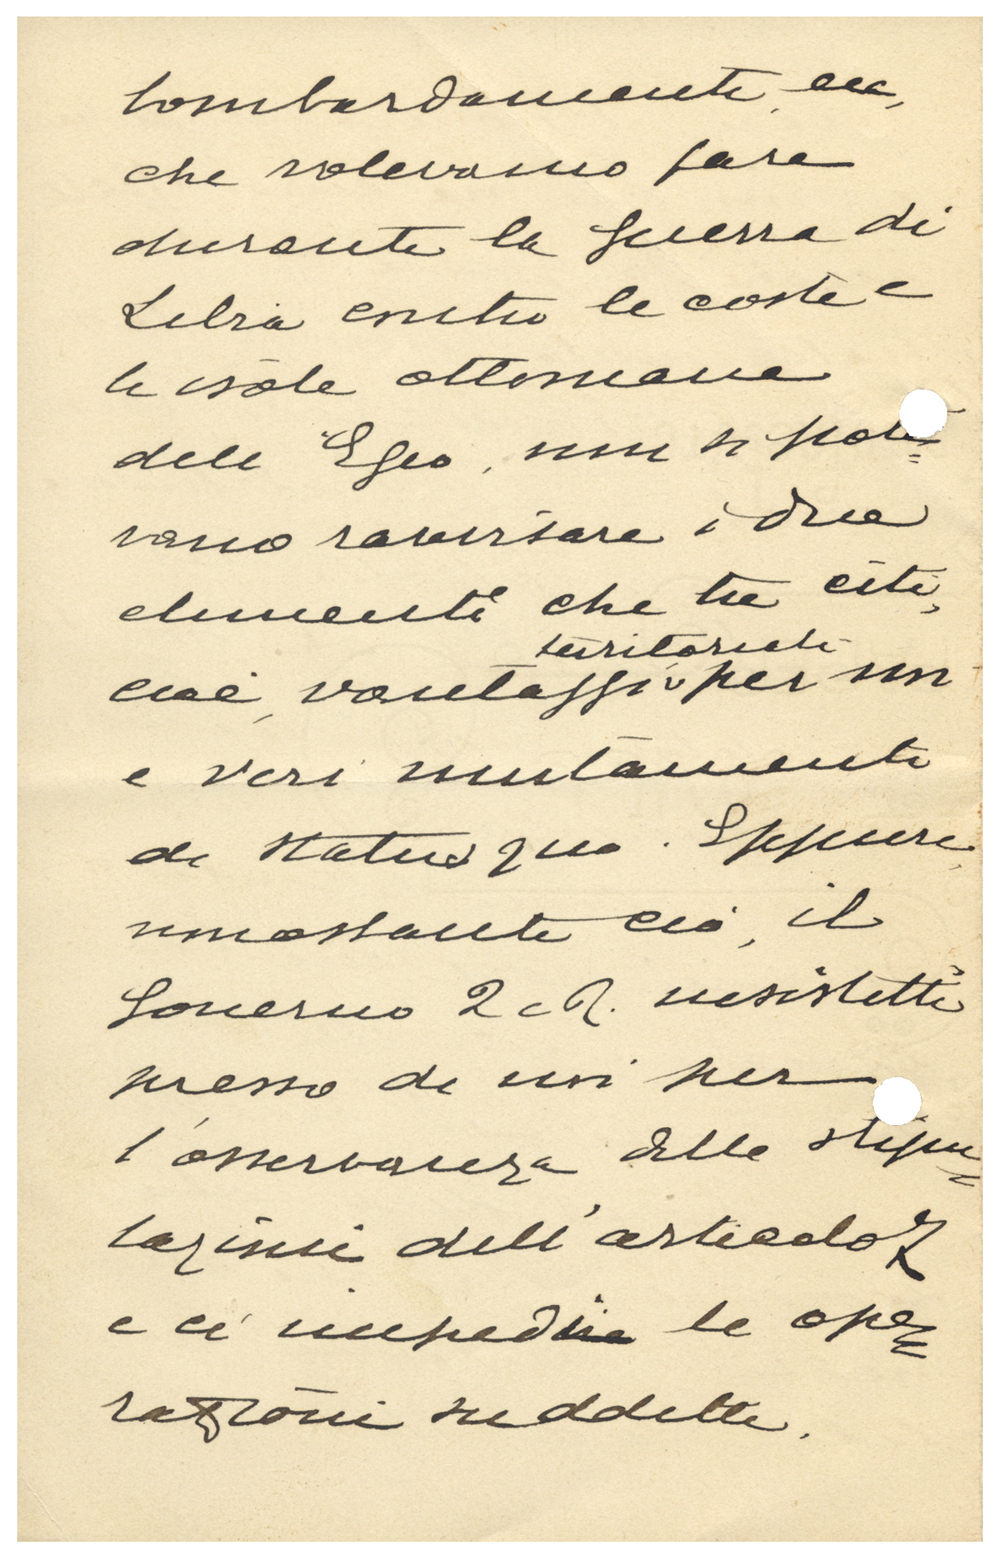 bombardamenti, ecc,
che volevamo fare
durante la guerra di
Libia contro le coste e
le isole ottomane
dell' Egeo, non si pote=
vano ravvisare i due
elementi che tu citi,
territoriali
cioè, vantaggi per noi
e veri mutamenti
di status quo. Eppure,
nonostante ciò, il
Governo I e R. insistette
presso di noi per
l'osservanza delle stipu=
lazioni dell'articolo 7
e ci impedire le ope=
razioni suddette.